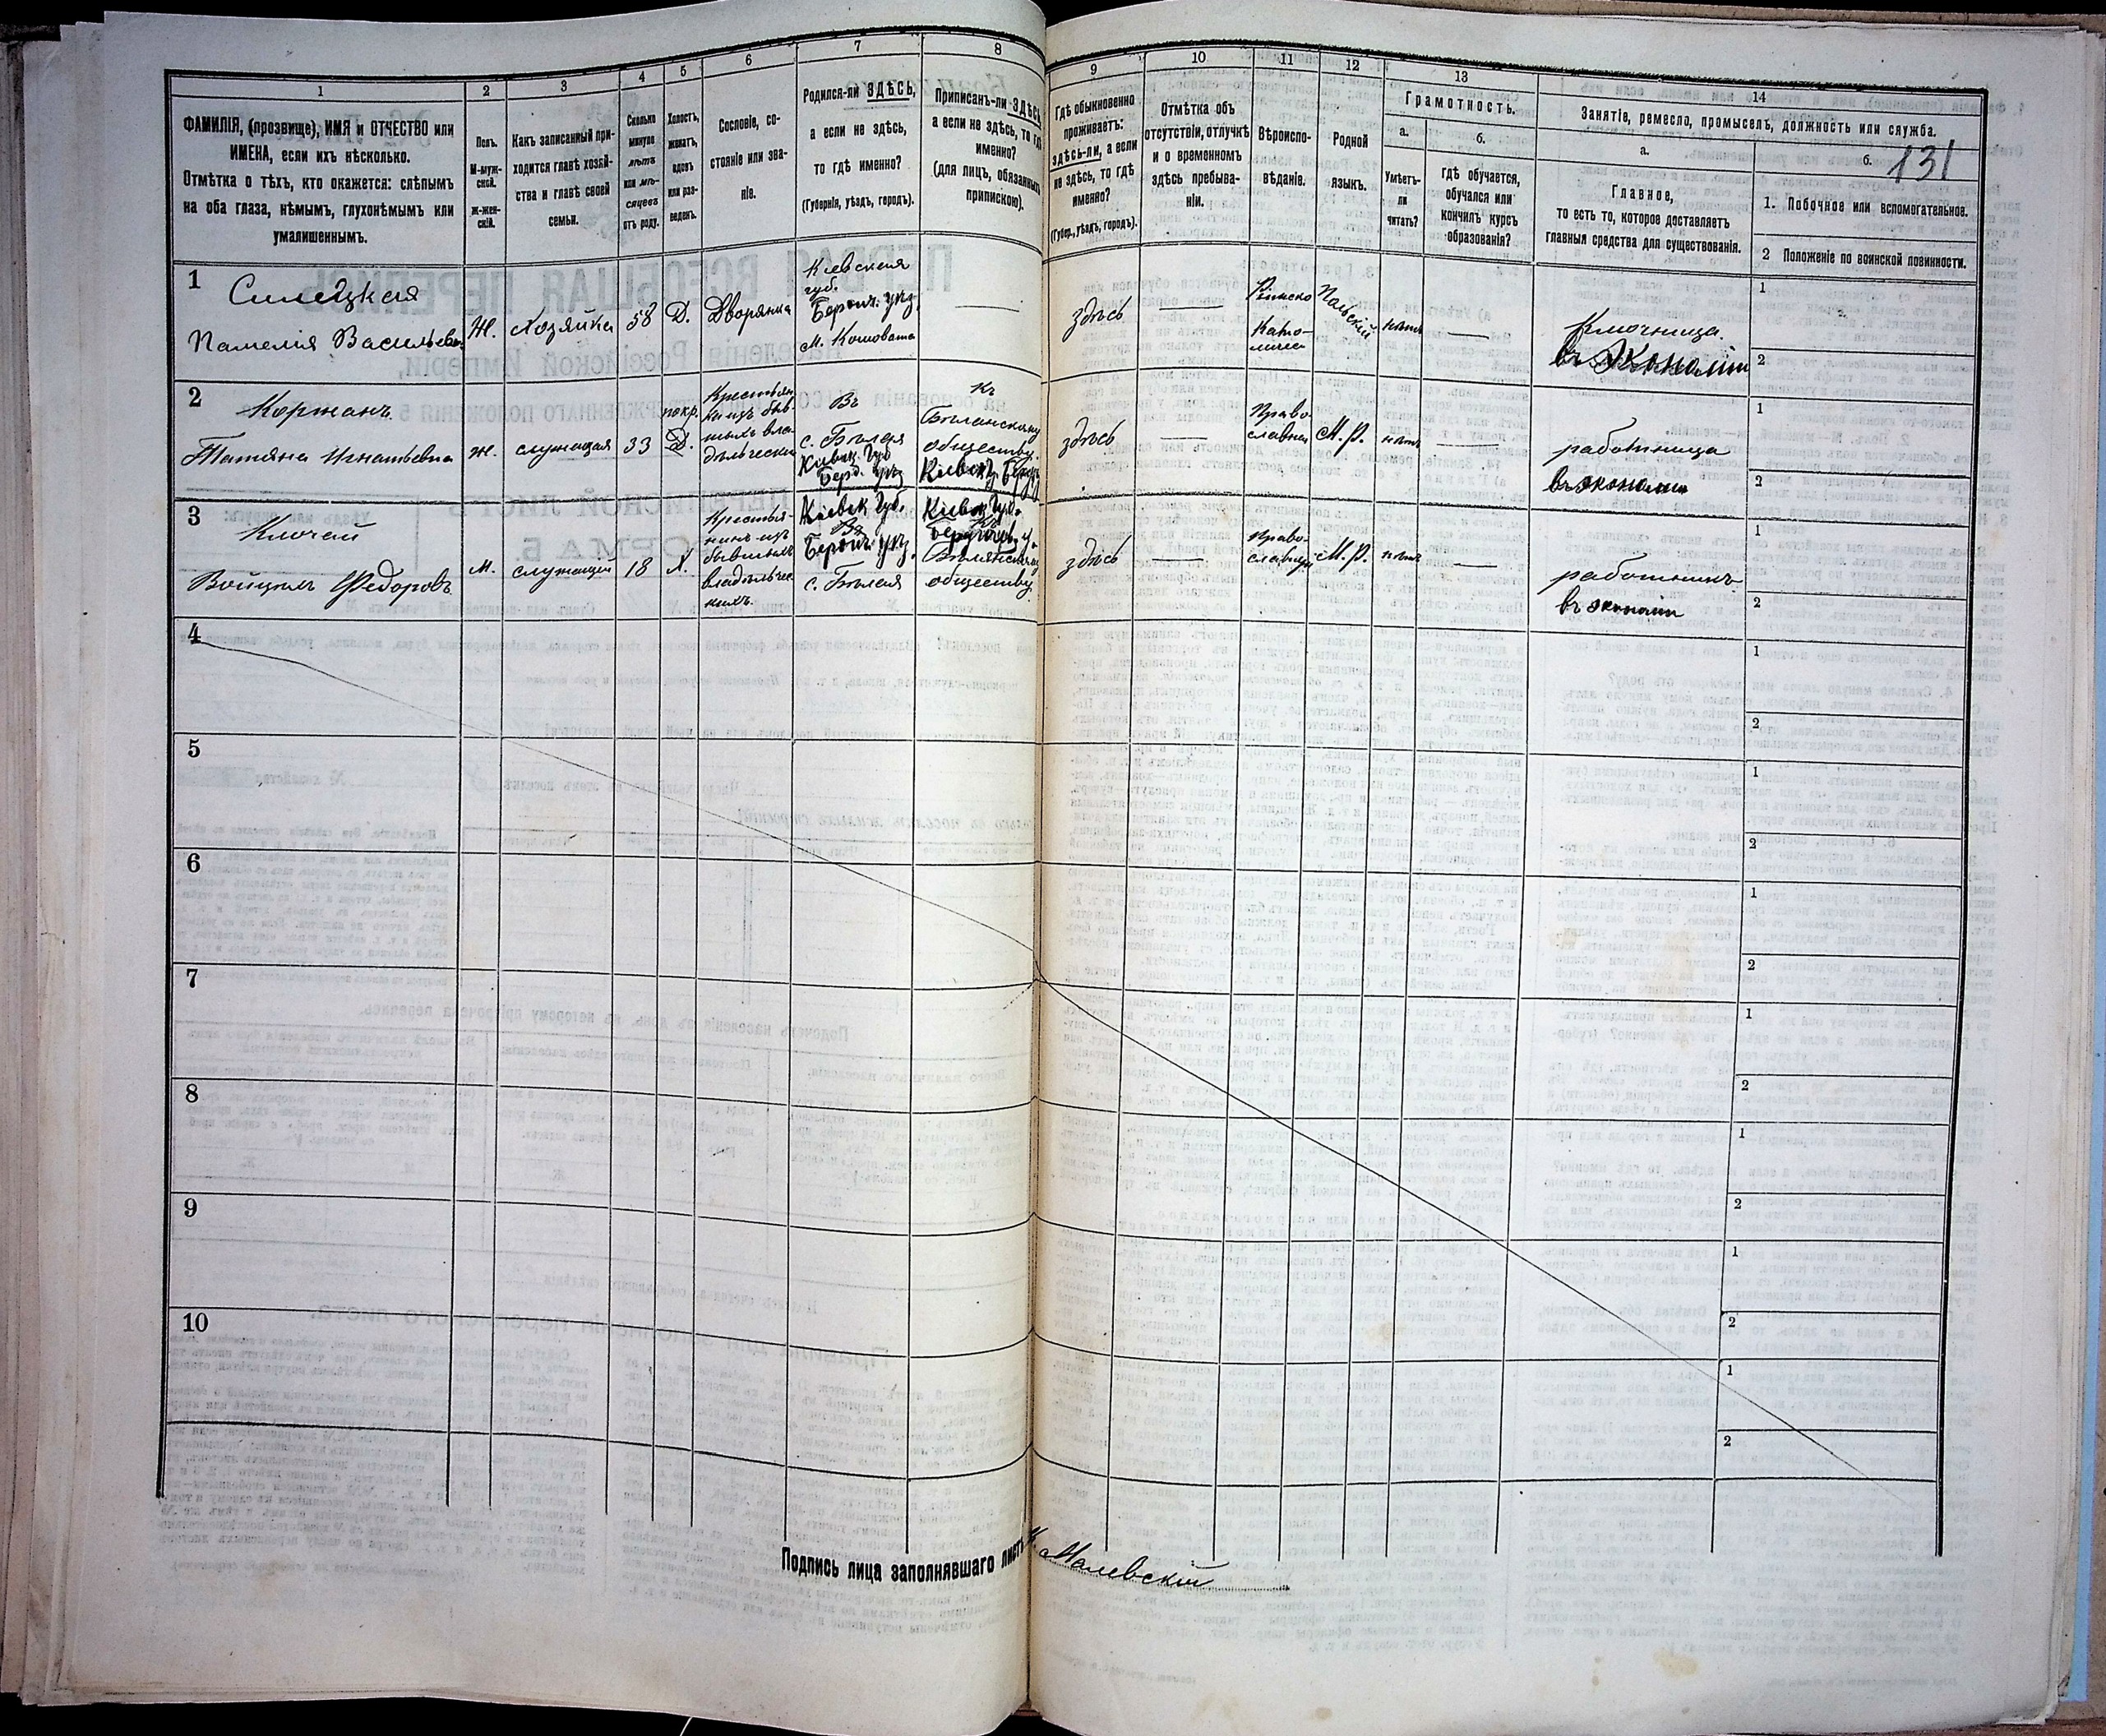 1
2
3
4
5
6
7
8
9
10
11
12
13
14
ФАМИЛІЯ, (прозвище), ИМЯ и ОТЧЕСТВО или
ИМЕНА, если ихъ нѣсколько.
Отмѣтка о тѣхъ, кто окажется: слѣпымъ
на оба глаза, нѣмымъ, глухонѣмымъ или
умалишеннымъ.
Полъ.
М-муж-
ской.
Ж-жен-
скій.
Какъ записанный при-
ходится главѣ хозяй-
ства и главѣ своей
семьи.
Сколько
минуло
лѣтъ
или мѣ-
сяцевъ
отъ роду.
Холостъ,
женатъ,
вдовъ
или раз-
веденъ.
Сословіе, со-
стояніе или зва-
ніе.
Родился-ли ЗДѢСЬ,
а если не здѣсь,
то гдѣ именно?
(Губернія, уѣздъ, городъ).
Приписанъ-ли ЗДѢСЬ,
а если не здѣсь, то гдѣ
именно?
(для лицъ, обязанныхъ
припискою).
Гдѣ обыкновенно
проживаетъ:
здѣсь-ли, а если
не здѣсь, то гдѣ
именно?
(Губер., уѣздъ, городъ).
Отмѣтка объ
отсутствіи, отлучкѣ
и о временномъ
здѣсь пребыва-
ніи.
Вѣроиспо-
вѣданіе.
Родной
языкъ.
Грамотность.
а.
Умѣетъ-
ли
читать?
б.
гдѣ обучается,
обучался или
кончилъ курсъ
образованія?
Занятіе, ремесло, промыселъ, должность или служба.
а.
Главное,
то есть то, которое доставляетъ
главныя средства для существованія.
б.
131
1. Побочное или вспомогательное.
2 Положеніе по воинской повинности.
1
Силецкая
Памелія Васильева
Ж.
хозяйка
58
Д.
Дворянка
Кіевская
губ.
м. Кошовата
здѣсь
Римско
Като-
Польскій
нѣтъ
Ключница
въ экономіи
1
2
2
Коржанъ
Татьяна Игнатьевна
ж.
служащая
33
Д.
Въ
с. Бѣлая
Кіевск. Губ
Берд. уѣз
Къ
обществу
здѣсь
Право-
славная
М. Р.
нѣтъ
работница
въ экономіи
1
2
3
Ключай
Войцим Федоровъ
М.
служащій
18
Х.
Крестья-
нинъ изъ
бывшихъ
владѣльчес
кихъ.
Кіевск. Губ.
Въ
с. Бѣлая
Кіевск. Губ.
Къ
обществу
здѣсь
Право-
М. Р.
нѣтъ
работникъ
въ экономіи
1
2
4
1
2
5
1
2
6
1
2
7
1
2
8
1
2
9
1
2
10
1
2
Подпись лица заполнявшаго листъ
Малевскій